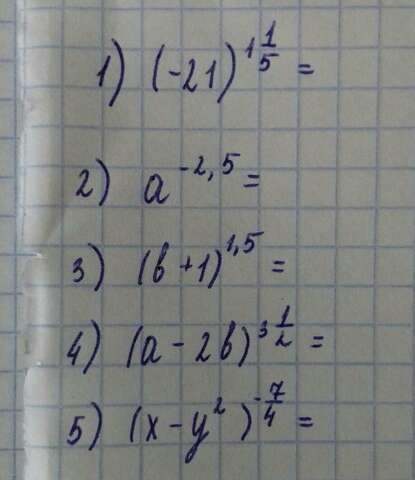 1) (-21)^{1 1/5} =
2) a^{-2,5} =
3) (b+1)^{1,5} =
4) (a - 2b)^{3 1/2} =
5) (x - y^2)^{-7/4} =